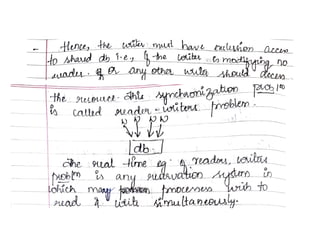 - Hence, the writer must have exclusion access
to shared db i.e, if the writer is modifying no
reader or any other writer should access
the resource. This synchronization problm
is called reader-writers problem.
W W W W
db
The real time eg of readers, writers
problm is any reservation system in
which many processes wish to
read & write simultaneously.